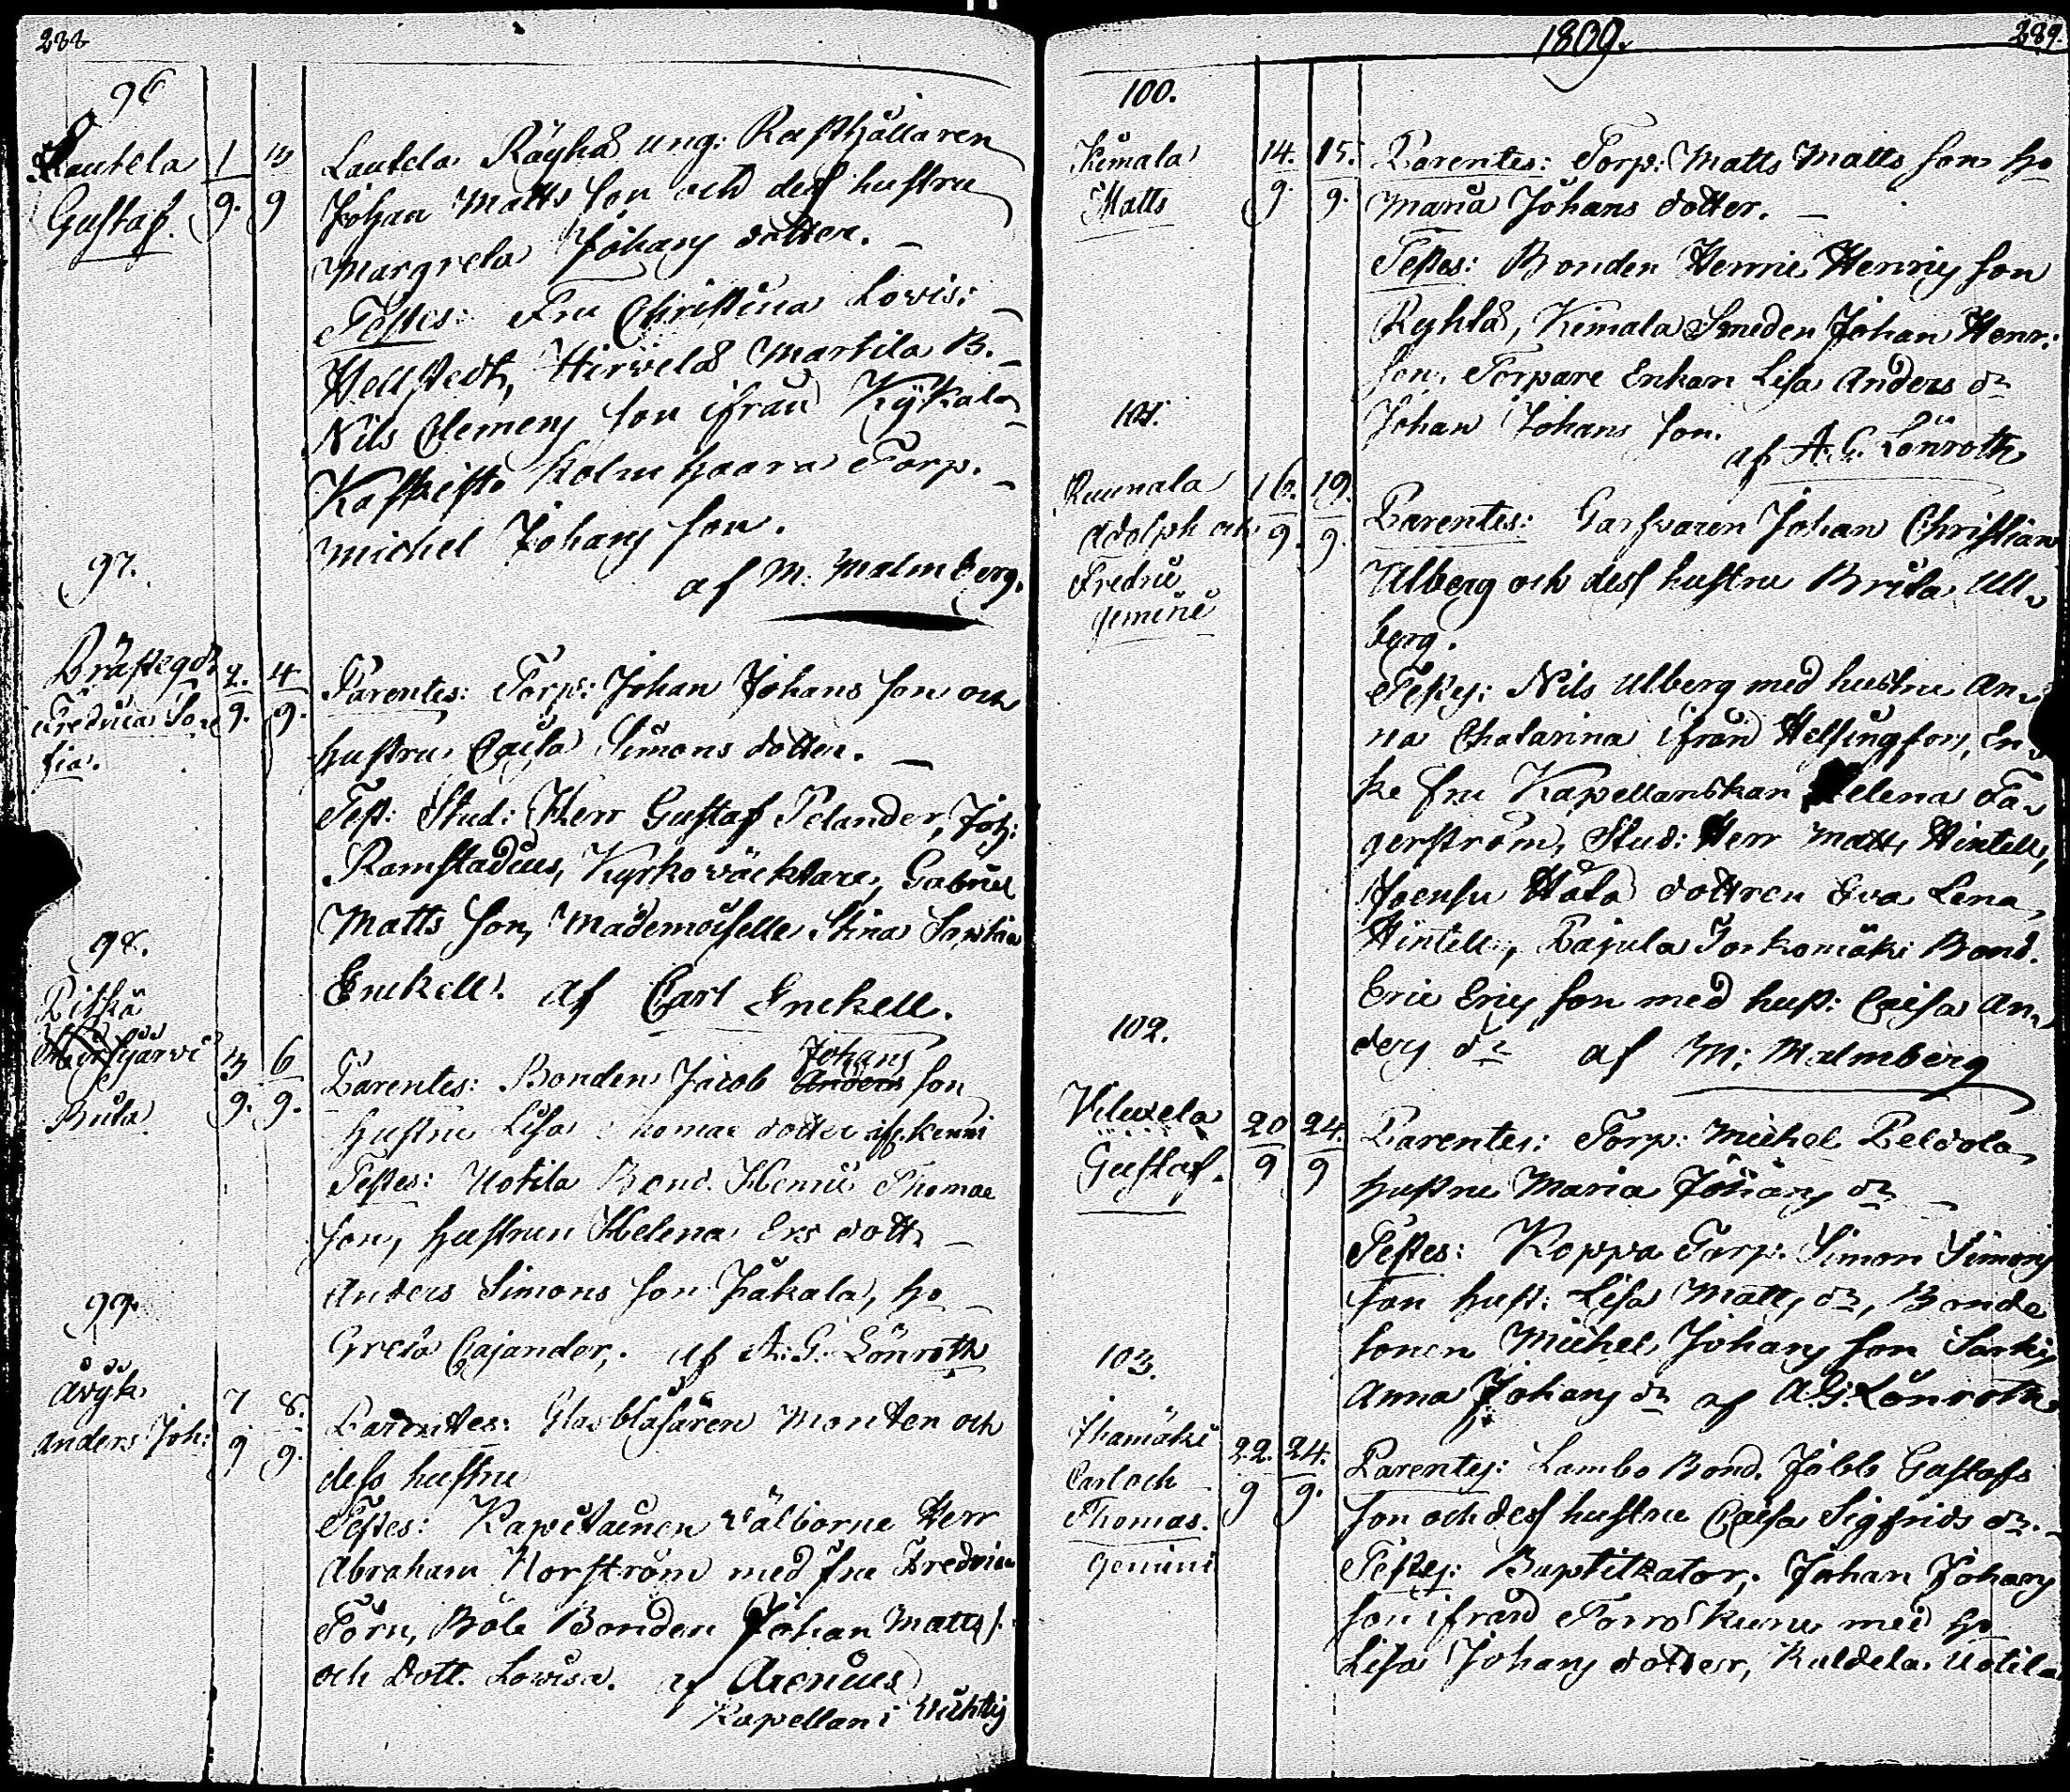 288
96
Lautela
Gustaf.
1
9.
3
9
Lautela Räyhä ung: Rusthållaren
Johan Matts son och dess hustru
Margreta Johans dotter. —
Testes: Fru Christina Lovis: —
Hellstedt, Hirvelä Martila B. —
Nils Clemens son ifrån Kÿkala
Kaskisto Kolmhaara Torp. —
Michel Johans son.
af M: Malmberg.
97.
Prästegd
Fredrica So
fia.
2.
9.
4
9.
Parentes: Torp: Johan Johans son och
hustru Cajsa Simons dotter. —
Test: Stud: Herr Gustaf Pelander, Joh:
Ramstadius, Kyrkowäcktare, Gabriel
Matts son, Mademoiselle Stina Sophia
Enckell. af Carl Enckell.
98.
Pitkä
järvi
Brita
3
9.
6
9.
Parentes: Bonden Jacob Johans son
Hustru Lisa Thomae dotter
Testes: Uotila Bond. Henric Thomae
son, hustrun Helena Ers dott. —
Anders Simons son Pakala, ho —
Greta Cajander, af A: G: Lönroth
99.
Åvÿk
Anders Joh:
7
9
8.
9.
Parentes: Glasblåsaren Monten och
dess hustru
Testes: Kapitainen Välborne Herr
Abraham Norström med fru Fredrica
Törn, Böle Bonden Johan Matts s.
och Dott. Lovisa. af Arenius
Kapellan i Wichtis
1809.
289.
100.
Kimala
Matts
14.
9.
15.
9.
Parentes: Torp: Matts Matts son ho
Maria Johans dotter. —
Testes: Bonden Henric Henrics son
Ryhtä, Kimala Smeden Johan Henr:
son, Torpare Enkan Lisa Anders dr
Johan Johans son.
af A. G. Lönroth
101.
Ruunala
Adolph och
Fredric
gemini
16.
9.
19.
9.
Parentes: Garfvaren Johan Christian
Ulberg och dess hustru Brita Ull
berg.
Testes: Nils Ulberg med hustru An
na Chatarina ifrån Helsingfors, En
ke fru Kapellanskan Helena Fa
gerström, Stud: Herr Matts Hintell,
Joensu Håla dottren Eva Lena
Hintell, Pajula Jorkomäki Bond.
Eric Erics son med hust: Caisa An
ders dr af M: Malmberg
102.
Vilikkala
Gustaf.
20
9
24.
9
Parentes: Torp: Michel Peldola
hustru Maria Johans dr —
Testes: Koppa Torp. Simon Simons
son hust: Lisa Matts dr, Bonde
sonen Michel Johans son
Anna Johans dr af A.G. Lönroth
103.
Ihamäki
Carl och
Thomas.
gemini
22.
9
24.
9.
Parentes: Lambo Bond. Jobb Gustafs
son och dess hustru Caisa Sigfrids dr. —
Testes: Baptitkator, Johan Johans
son ifrån med ho
Lisa Johans dotter, Kuldela Uotila